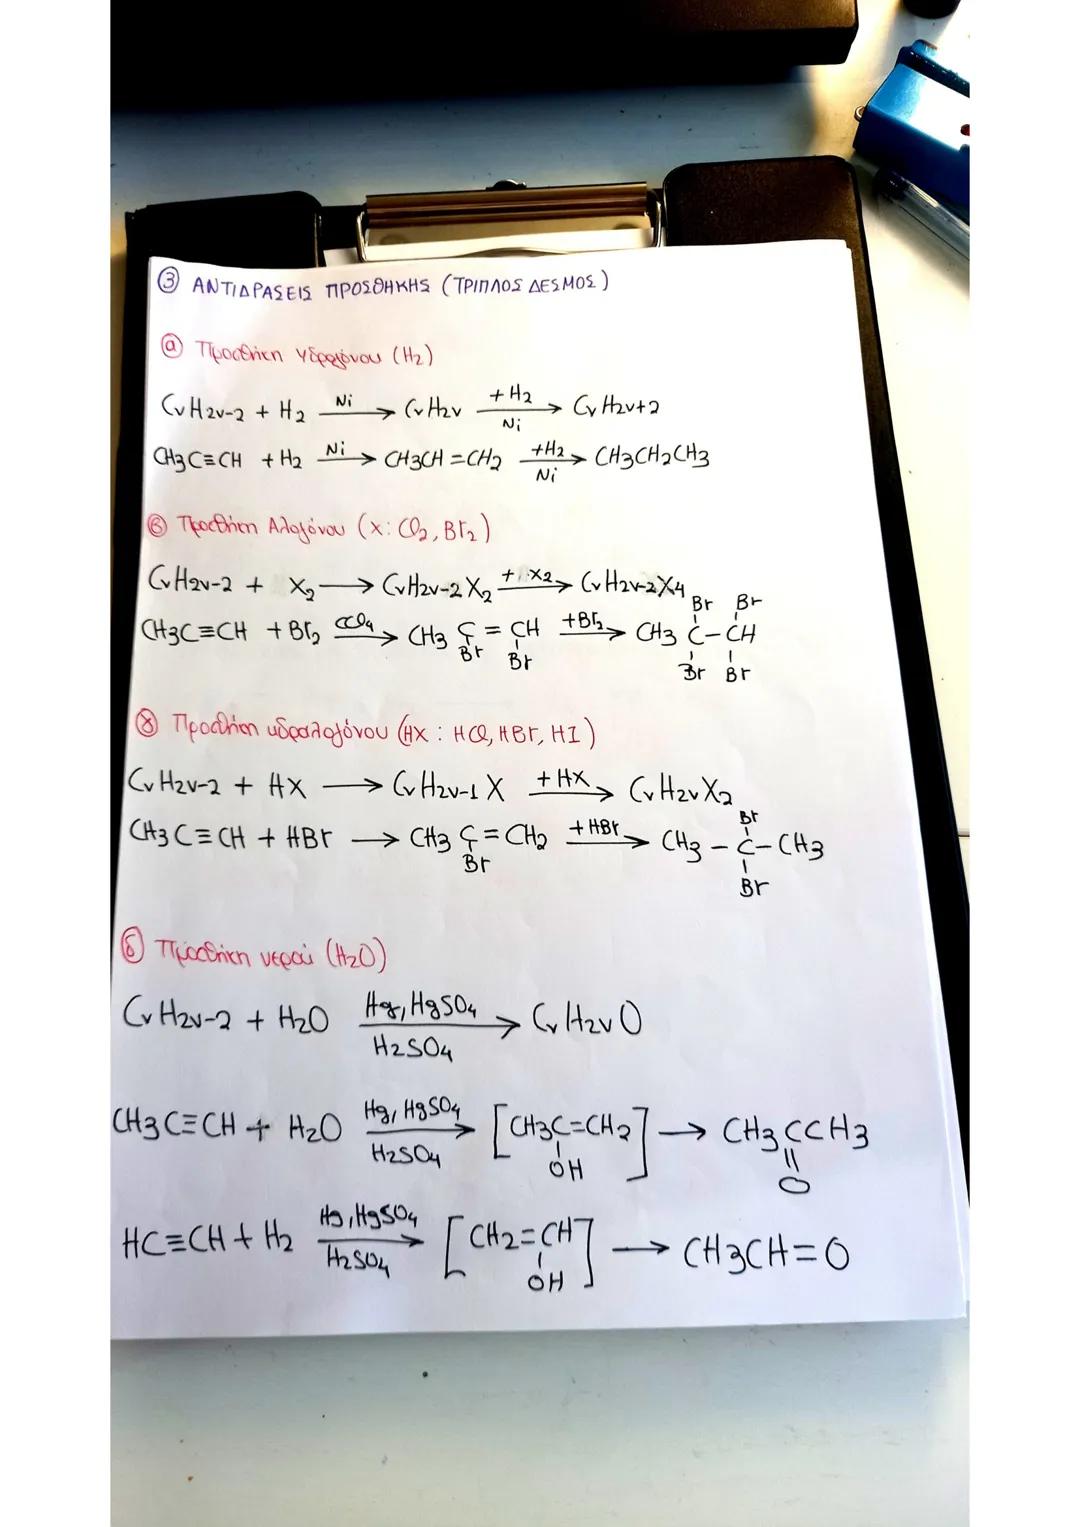 ③ ΑΝΤΙΔΡΑΣΕΙΣ ΠΡΟΣΘΗΚΗΣ (ΤΡΙΠΛΟΣ ΔΕΣΜΟΣ)
ⓐ Προσθήκη Υδρογόνου (H2)
CvH2v-2 + H2 —Ni→ CvH2v —+H2/Ni→ CvH2v+2
CH3C≡CH + H2 —Ni→ CH3CH=CH2 —+H2/Ni→ CH3CH2CH3
ⓑ Προσθήκη Αλογόνου (X: Cl2, Br2)
CvH2v-2 + X2 ⟶ CvH2v-2X2 —+X2→ CvH2v-2X4
Br Br
CH3C≡CH + Br2 —CCl4→ CH3 C = CH —+Br2→ CH3 C-CH
Br Br Br Br
(γ) Προσθήκη υδραλογόνου (HX: HCl, HBr, HI)
CvH2v-2 + HX ⟶ CvH2v-1X —+HX→ CvH2vX2
Br
CH3C≡CH + HBr ⟶ CH3 C=CH2 —+HBr→ CH3 - C - CH3
Br Br
(δ) Προσθήκη νερού (H2O)
CvH2v-2 + H2O —Hg, HgSO4/H2SO4→ CvH2vO
CH3C≡CH + H2O —Hg, HgSO4/H2SO4→ [CH3C=CH2] ⟶ CH3CCH3
OH O
HC≡CH + H2 —Hg, HgSO4/H2SO4→ [CH2=CH] ⟶ CH3CH=O
OH